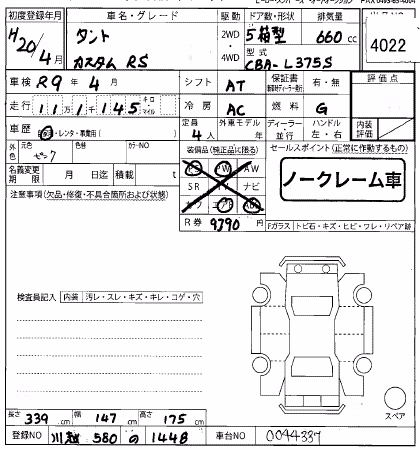 初度登録年月 車名・グレード 駆動 ドア数・形状 排気量
H20/4月 タント カスタムRS 2WD・4WD 5箱型 660cc
型式 CBA-L375S
4022
車検 R9年4月 シフト AT 保証書 有・無 評価点
走行 11万1145 キロ マイル 冷房 AC 燃料 G
車歴 レンタ・事業用( ) 定員 4人 外車モデル 年 ディーラー・並行 ハンドル 左・右 内装評価
外色 ピンク 色替 カラーNO 装備品(純正品に限る) セールスポイント(正常に作動するもの)
名義変更期限 月 日迄 積載 t PS PW AW
注意事項(欠品・修復・不具合箇所および状態) SR ナビ ノークレーム車
カワ エアB ABS
R券 9790円
Fガラス トビ石・キズ・ヒビ・ワレ・リペア跡
検査員記入 内装 汚レ・スレ・キズ・キレ・コゲ・穴
スペア
長さ 339cm 幅 147cm 高さ 175cm
登録NO 川越 580 の 1448 車台NO 0044337